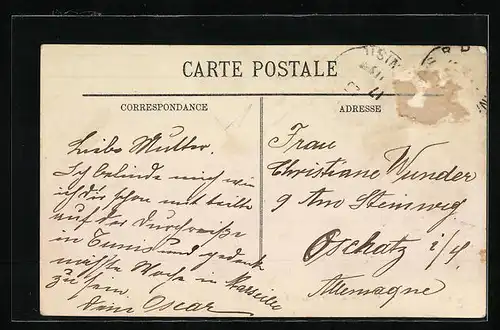 CARTE POSTALE
CORRESPONDANCE
ADRESSE
Liebe Mutter.
Ich befinde mich wie
ich dir schon mit teilte
auf der Durchreiße
in Tunis und gedenke
nächste Woche in Marseille
zu sein.
Dein Oscar
Frau
Christiane Wunder
9 Am Steinweg
Oschatz i/S.
Allemagne